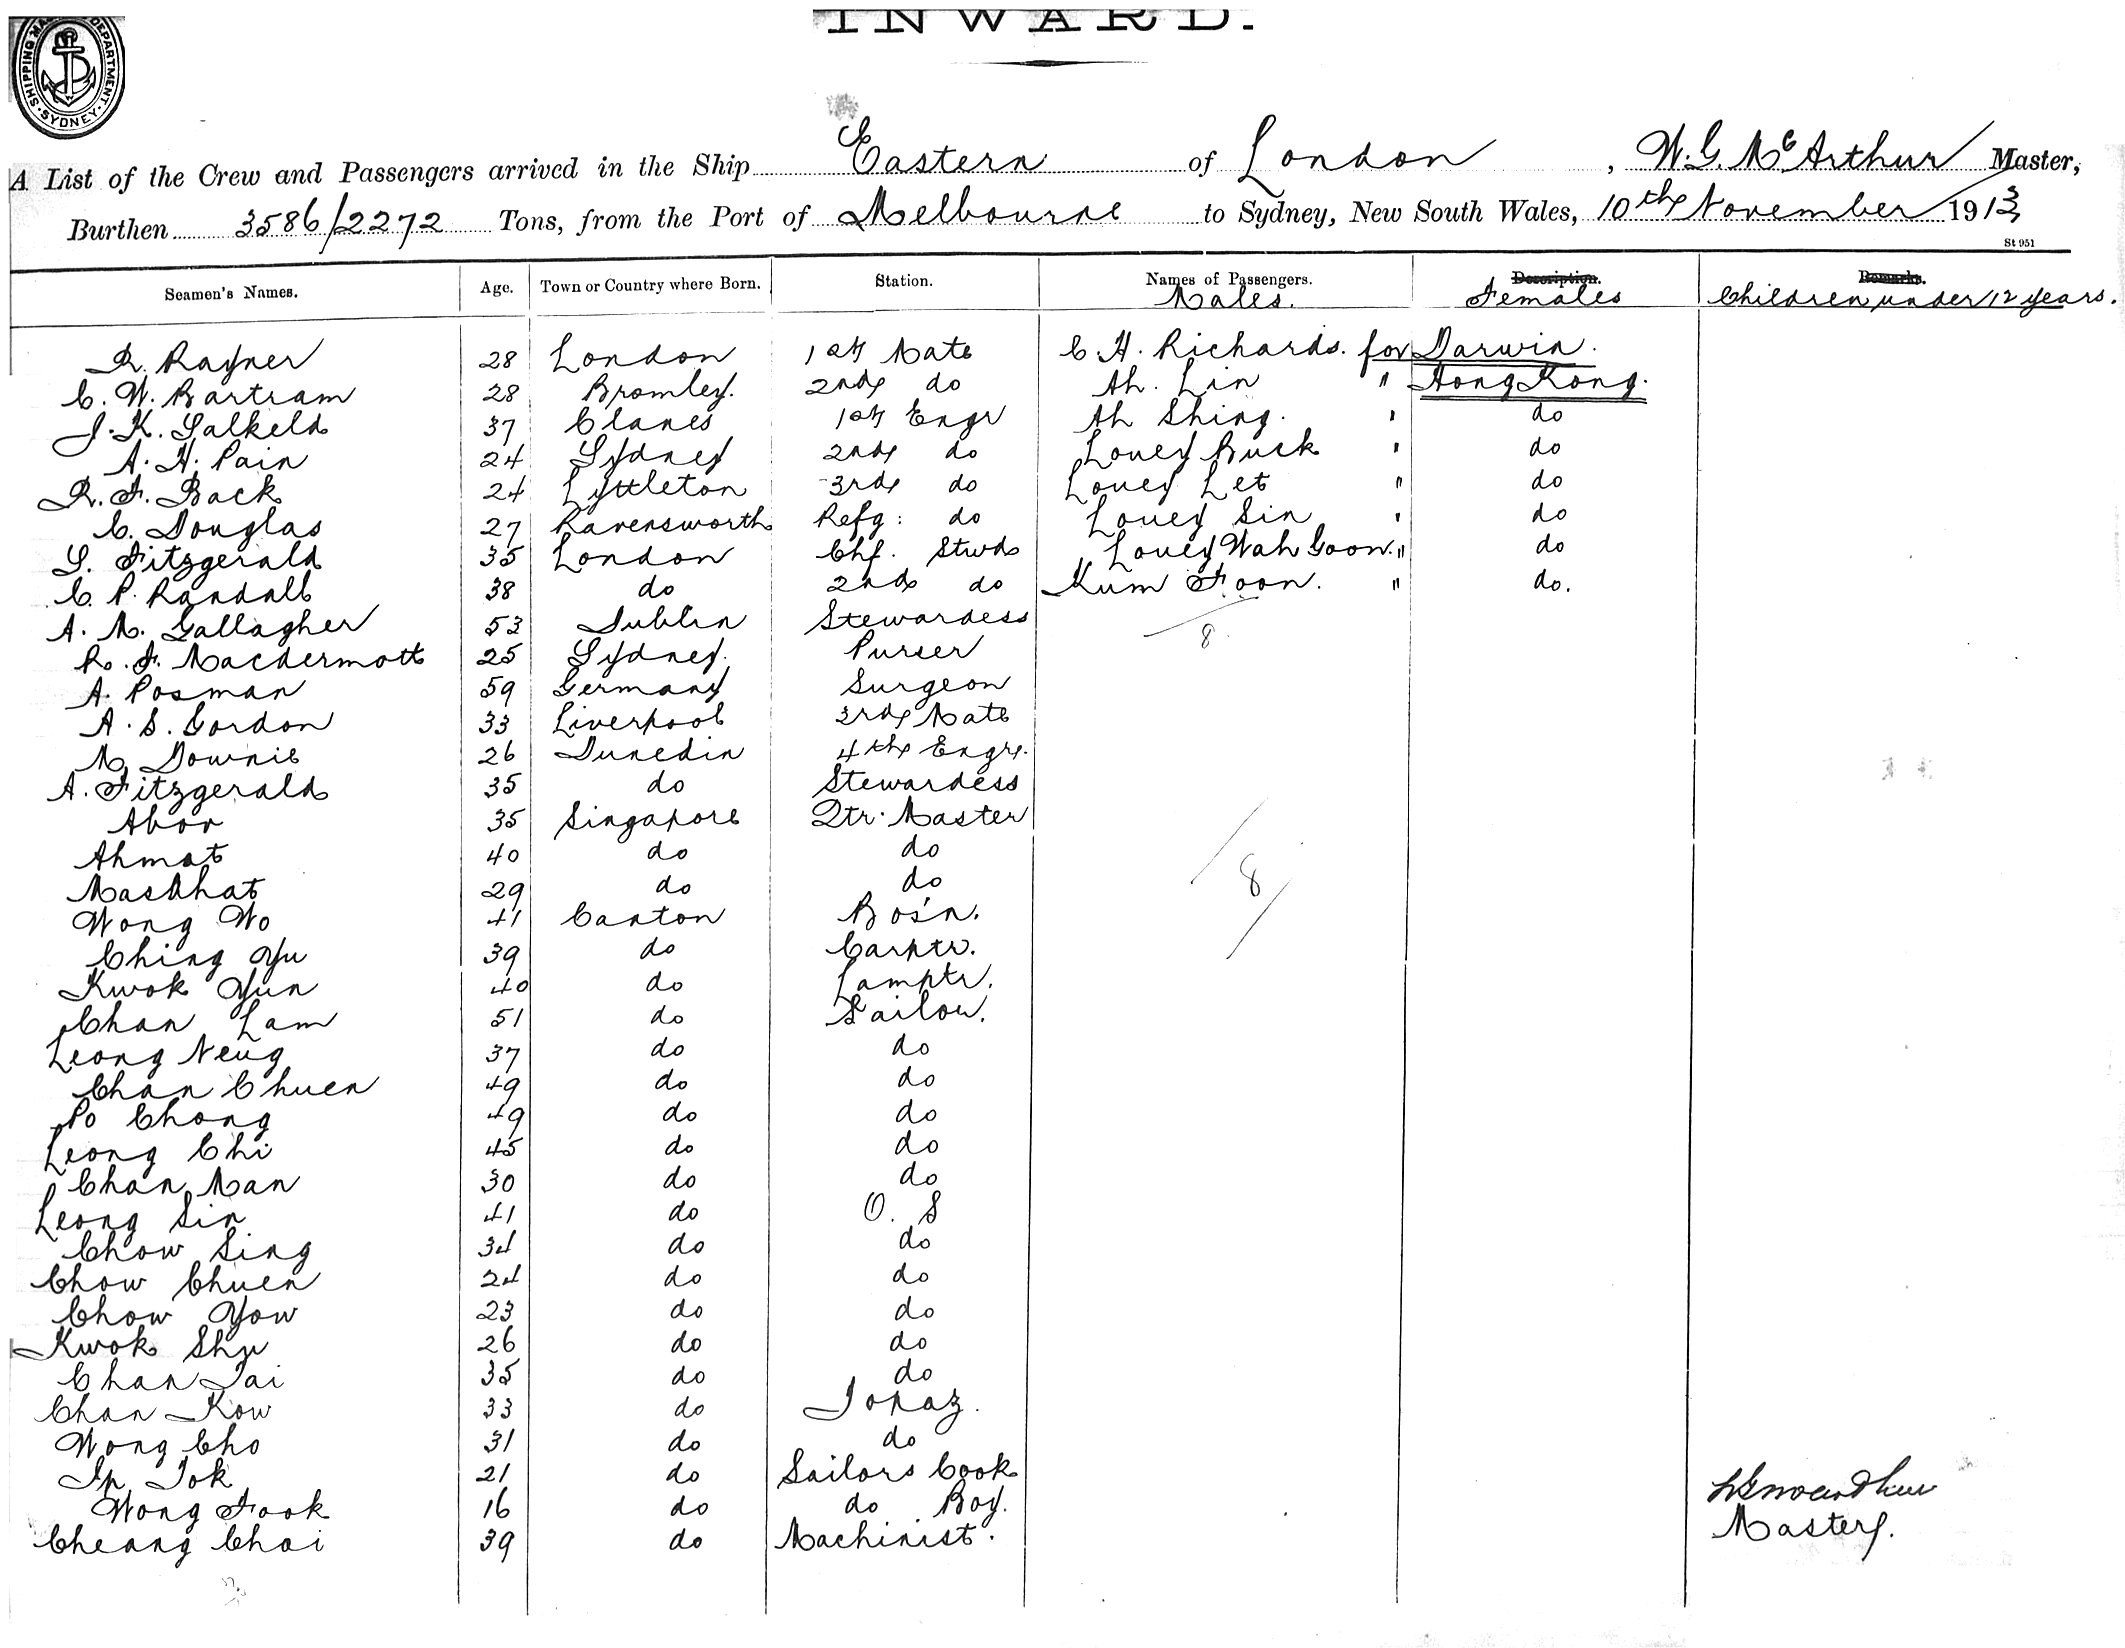 SHIPPING MA DEPARTMENT. SYDNEY.
INWARD.
A List of the Crew and Passengers arrived in the Ship Eastern of London, W. G. McArthur Master,
Burthen 3586/2272 Tons, from the Port of Melbourne to Sydney, New South Wales, 10th November 1913
St 951
Seamen's Names. Age. Town or Country where Born. Station. Names of Passengers. Description. Remarks.
Males. Females Children under 12 years.
R. Rayner 28 London 1st Mate C. H. Richards. for Darwin.
C. W. Bartram 28 Bromley. 2nd do Ah. Lin " Hong Kong.
J. K. Salkeld 37 Clanes 1st Engr Ah Shing. " do
A. H. Pain 24 Sydney 2nd do Louey Buck " do
R. F. Back 24 Lyttleton 3rd do Louey Let " do
C. Douglas 27 Ravensworth Refg: do Louey Sin " do
S. Fitzgerald 35 London Chf. Stwd Louey Wah Goon. " do
C. P. Randall 38 do 2nd do Kum Foon. " do.
A. M. Gallagher 53 Dublin Stewardess 8
R. F. Macdermott 25 Sydney. Purser
A. Posman 59 Germany Surgeon
A. S. Gordon 33 Liverpool 3rd Mate
M. Downie 26 Dunedin 4th Engr.
A. Fitzgerald 35 do Stewardess
Abor 35 Singapore Qtr. Master
Ahmat 40 do do 8
Masdhat 29 do do
Wong Wo 41 Canton Bos'n.
Ching Yu 39 do Carptr.
Kwok Yun 40 do Lamptr.
Chan Lam 51 do Sailor.
Leong Neug 37 do do
Chan Chuen 49 do do
Po Chong 49 do do
Leong Chi 45 do do
Chan Man 30 do do
Leong Sin 41 do O. S
Chow Sing 34 do do
Chow Chuen 24 do do
Chow Yow 23 do do
Kwok Shu 26 do do
Chan Tai 35 do do
Chan Kow 33 do Topaz.
Wong Cho 31 do do
Ip Tok 21 do Sailors Cook
Wong Fook 16 do do Boy.
Cheang Choi 39 do Machinist.
Master.